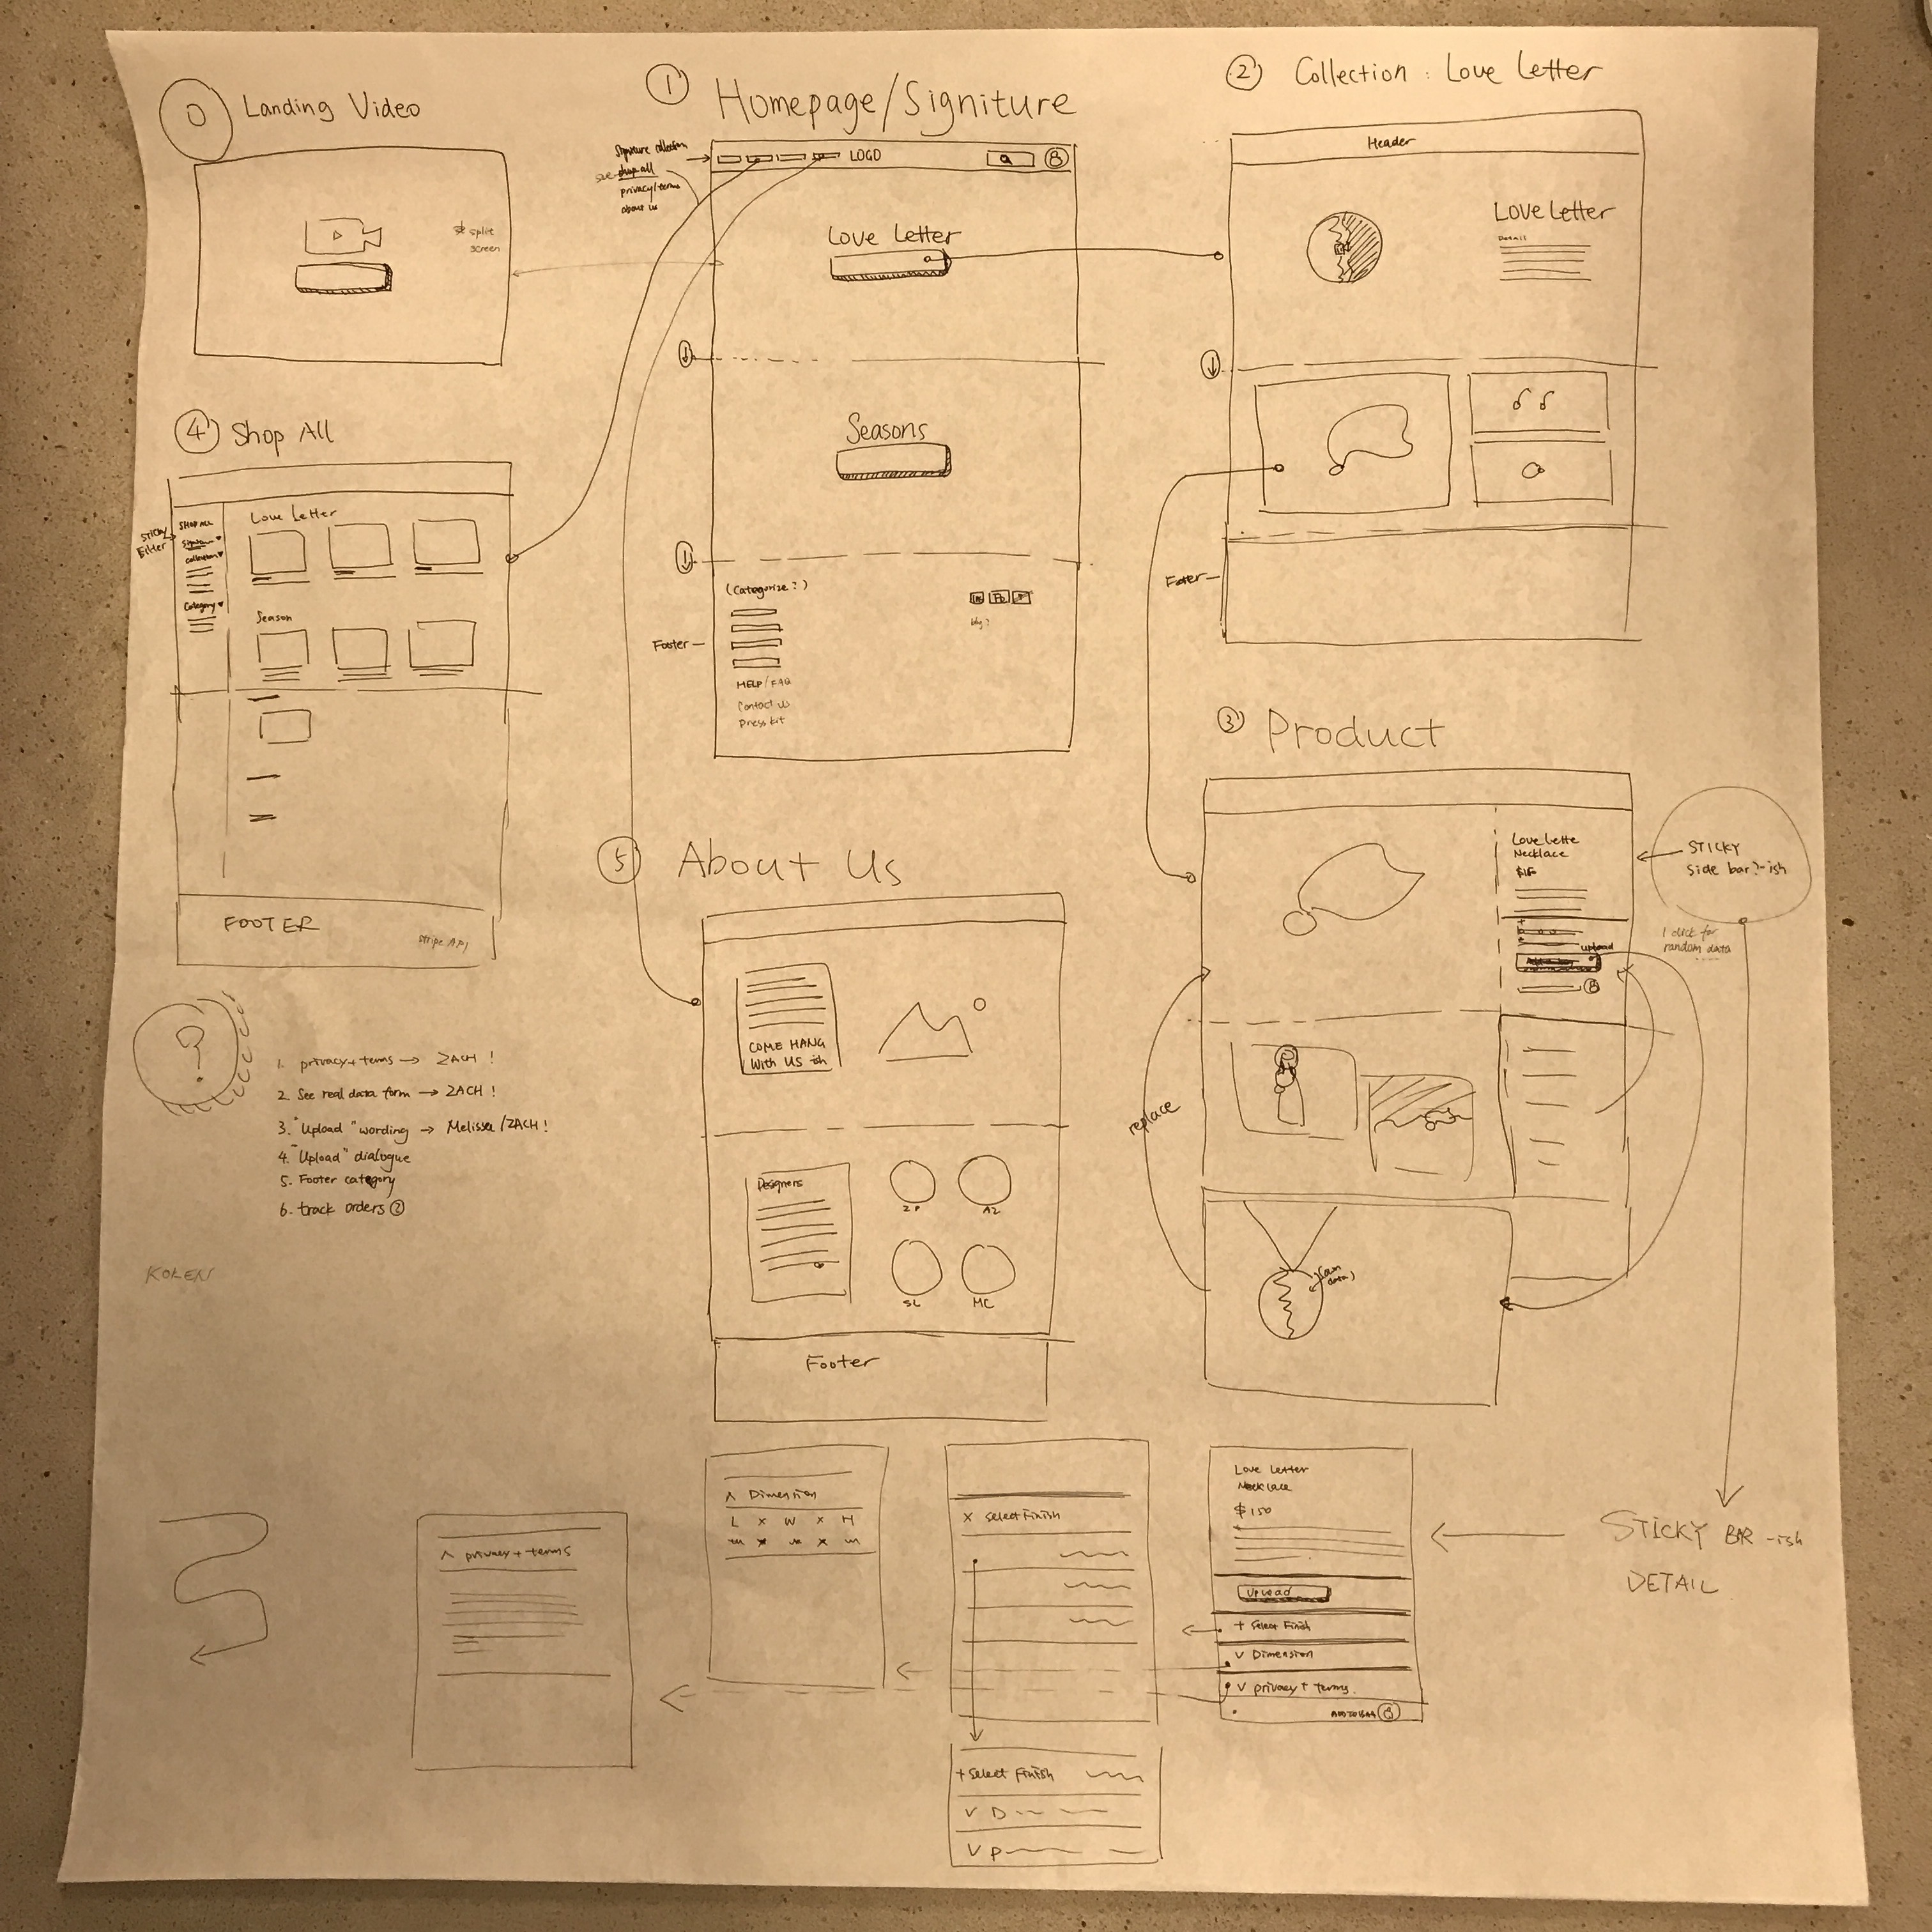 0 Landing Video
split
screen
1 Homepage/Signiture
Signature collection
shop all
privacy/terms
about us
LOGO
Love Letter
Seasons
(Categorize:)
Footer
HELP/FAQ
Contact us
Press kit
2 Collection: Love Letter
Header
Love Letter
Detail
Footer
4 Shop All
Sticky
Filter
SHOP ALL
Collection
Category
Love Letter
Season
FOOTER
Stripe API
3 Product
Love Lette
Necklace
upload
STICKY
Side bar?-ish
1 click for
random data
replace
(own
data)
5 About Us
COME HANG
With US ish
Designers
ZP
AZ
SL
MC
Footer
?
1. privacy+terms → ZACH!
2. See real data form → ZACH!
3. "Upload" wording → Melissa/ZACH!
4. "Upload" dialogue
5. Footer category
6. track orders ?
KOLEN
^ privacy + terms
^ Dimension
L x W x H
x select Finish
+ select Finish
V D
V P
Love Letter
Necklace
$150
Upload
+ Select Finish
V Dimension
V privacy + terms.
ADD TO BAG
STICKY BAR -ish
DETAIL